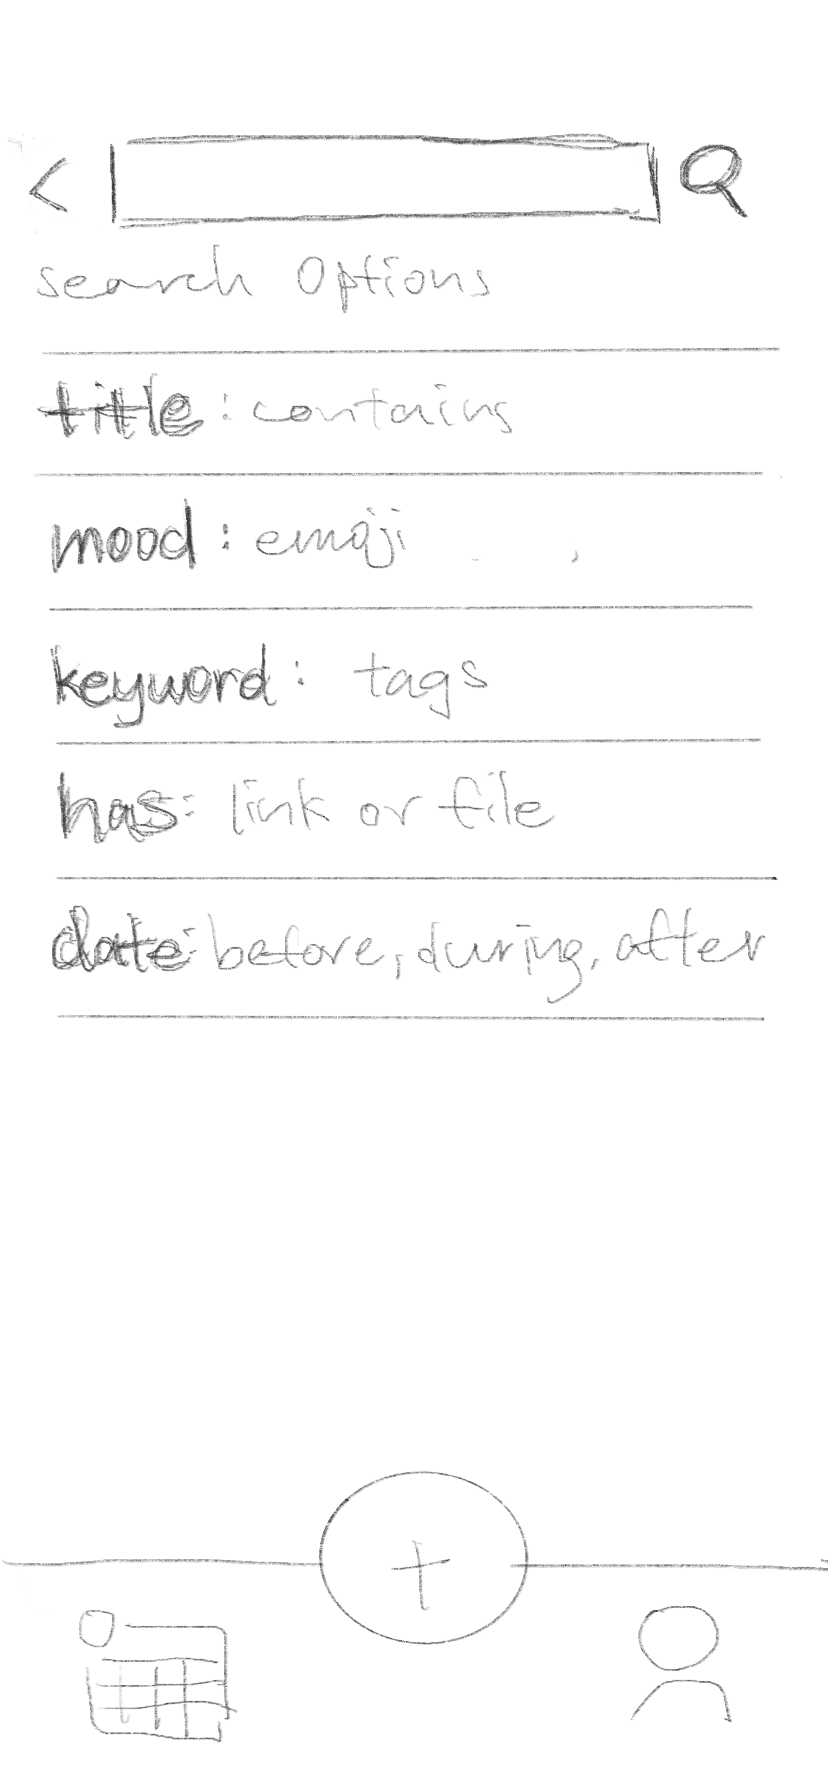 search Options
title: contains
mood: emoji
keyword: tags
has: link or file
date: before, during, after
+